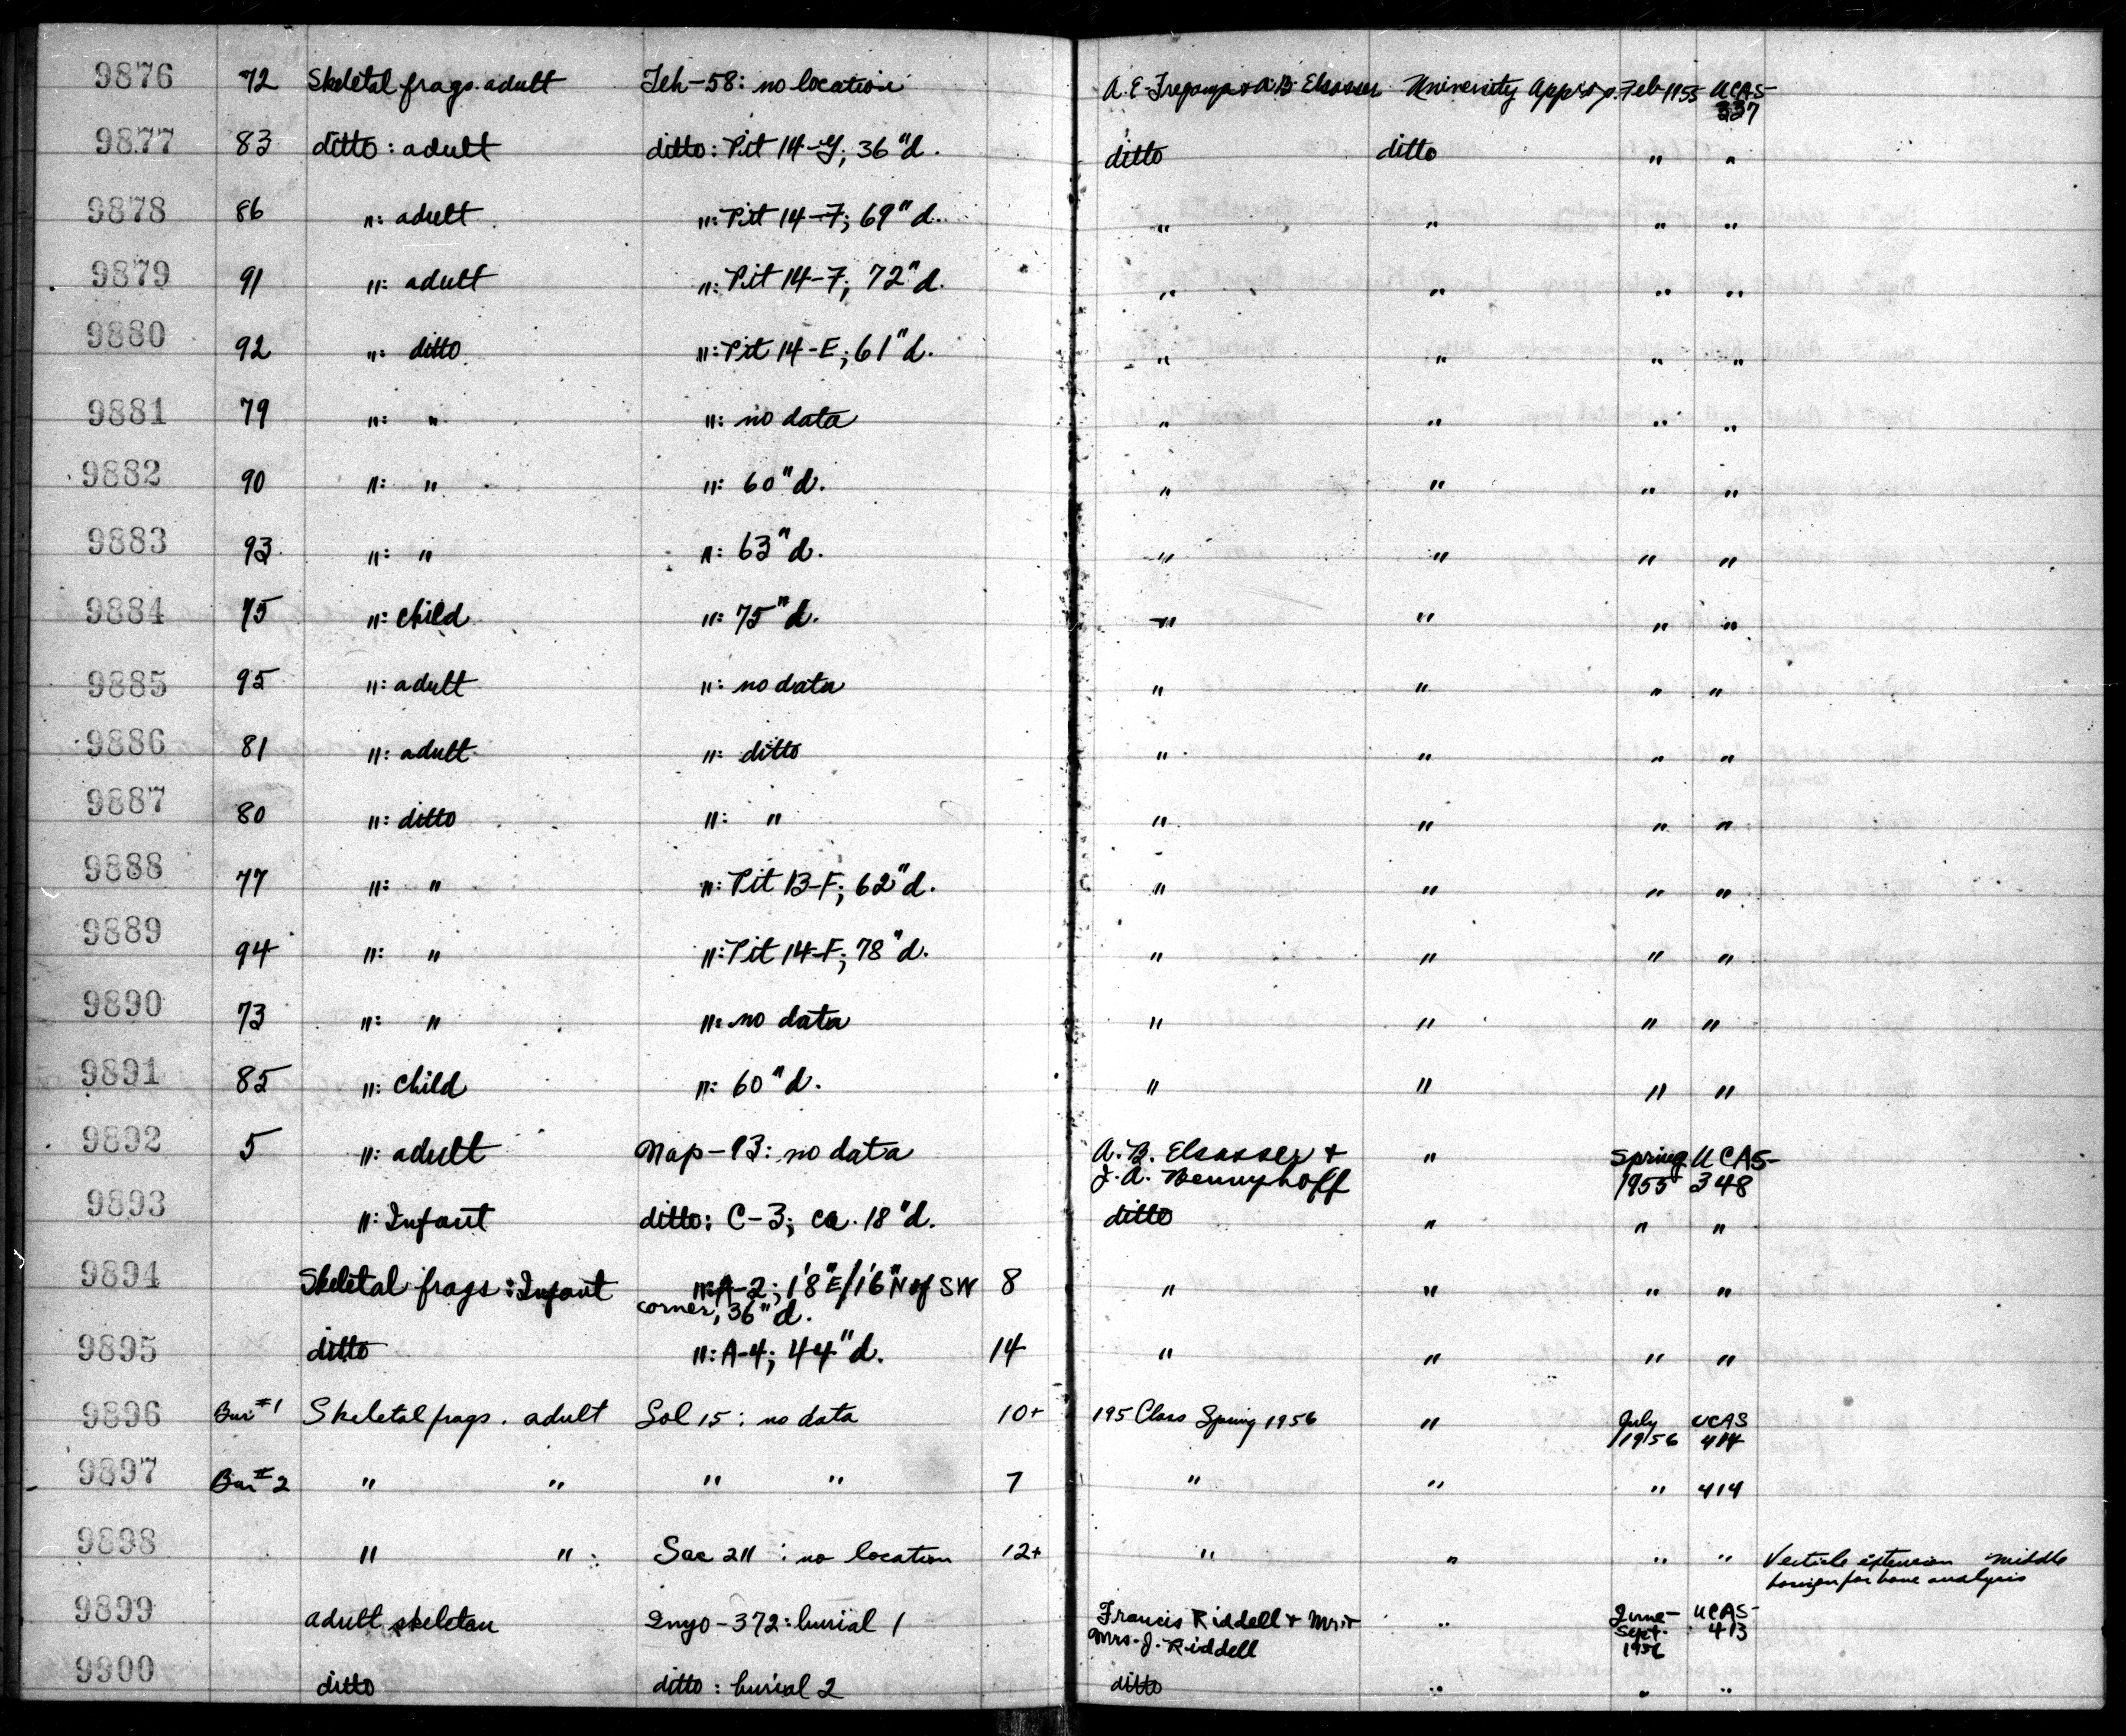 9876 72 Skeletal frags. adult Teh-58: no location A.E. Treganza & A.B. Elsasser University Approp. Feb 1955 UCAS-
337
9877 83 ditto: adult ditto: Pit 14-G; 36"d. ditto ditto " "
9878 86 ": adult ": Pit 14-7; 69"d. " " " "
9879 91 ": adult ": Pit 14-7; 72"d. " " " "
9880 92 ": ditto ": Pit 14-E; 61"d. " " " "
9881 79 ": " ": no data " " " "
9882 90 ": " ": 60"d. " " " "
9883 93 ": " ": 63"d. " " " "
9884 75 ": child ": 75"d. " " " "
9885 95 ": adult ": no data " " " "
9886 81 ": adult ": ditto " " " "
9887 80 ": ditto ": " " " " "
9888 77 ": " ": Pit 13-F; 62"d. " " " "
9889 94 ": " ": Pit 14-F; 78"d. " " " "
9890 73 ": " ": no data " " " "
9891 85 ": child ": 60"d. " " " "
9892 5 ": adult Nap-93: no data A.B. Elsasser & " Spring UCAS-
J.A. Bennyhoff 1955 348
9893 ": Infant ditto: C-3; ca. 18"d. ditto " " "
9894 Skeletal frags: Infant ": A-2; 1'8"E/1'6"N of SW 8 " " " "
corner, 36"d.
9895 ditto ": A-4; 44"d. 14 " " " "
9896 Bur #1 Skeletal frags. adult Sol 15: no data 10+ 195 Class Spring 1956 " July UCAS
1956 414
9897 Bur #2 " " " " 7 " " " 414
9898 " " Sac 211: no location 12+ " " " " Verticle extension middle
horizon for bone analysis
9899 adult skeleton Inyo-372: burial 1 Francis Riddell & Mr. & " June- UCAS-
Mrs. J. Riddell Sept. 413
1956
9900 ditto ditto: burial 2 ditto " " "